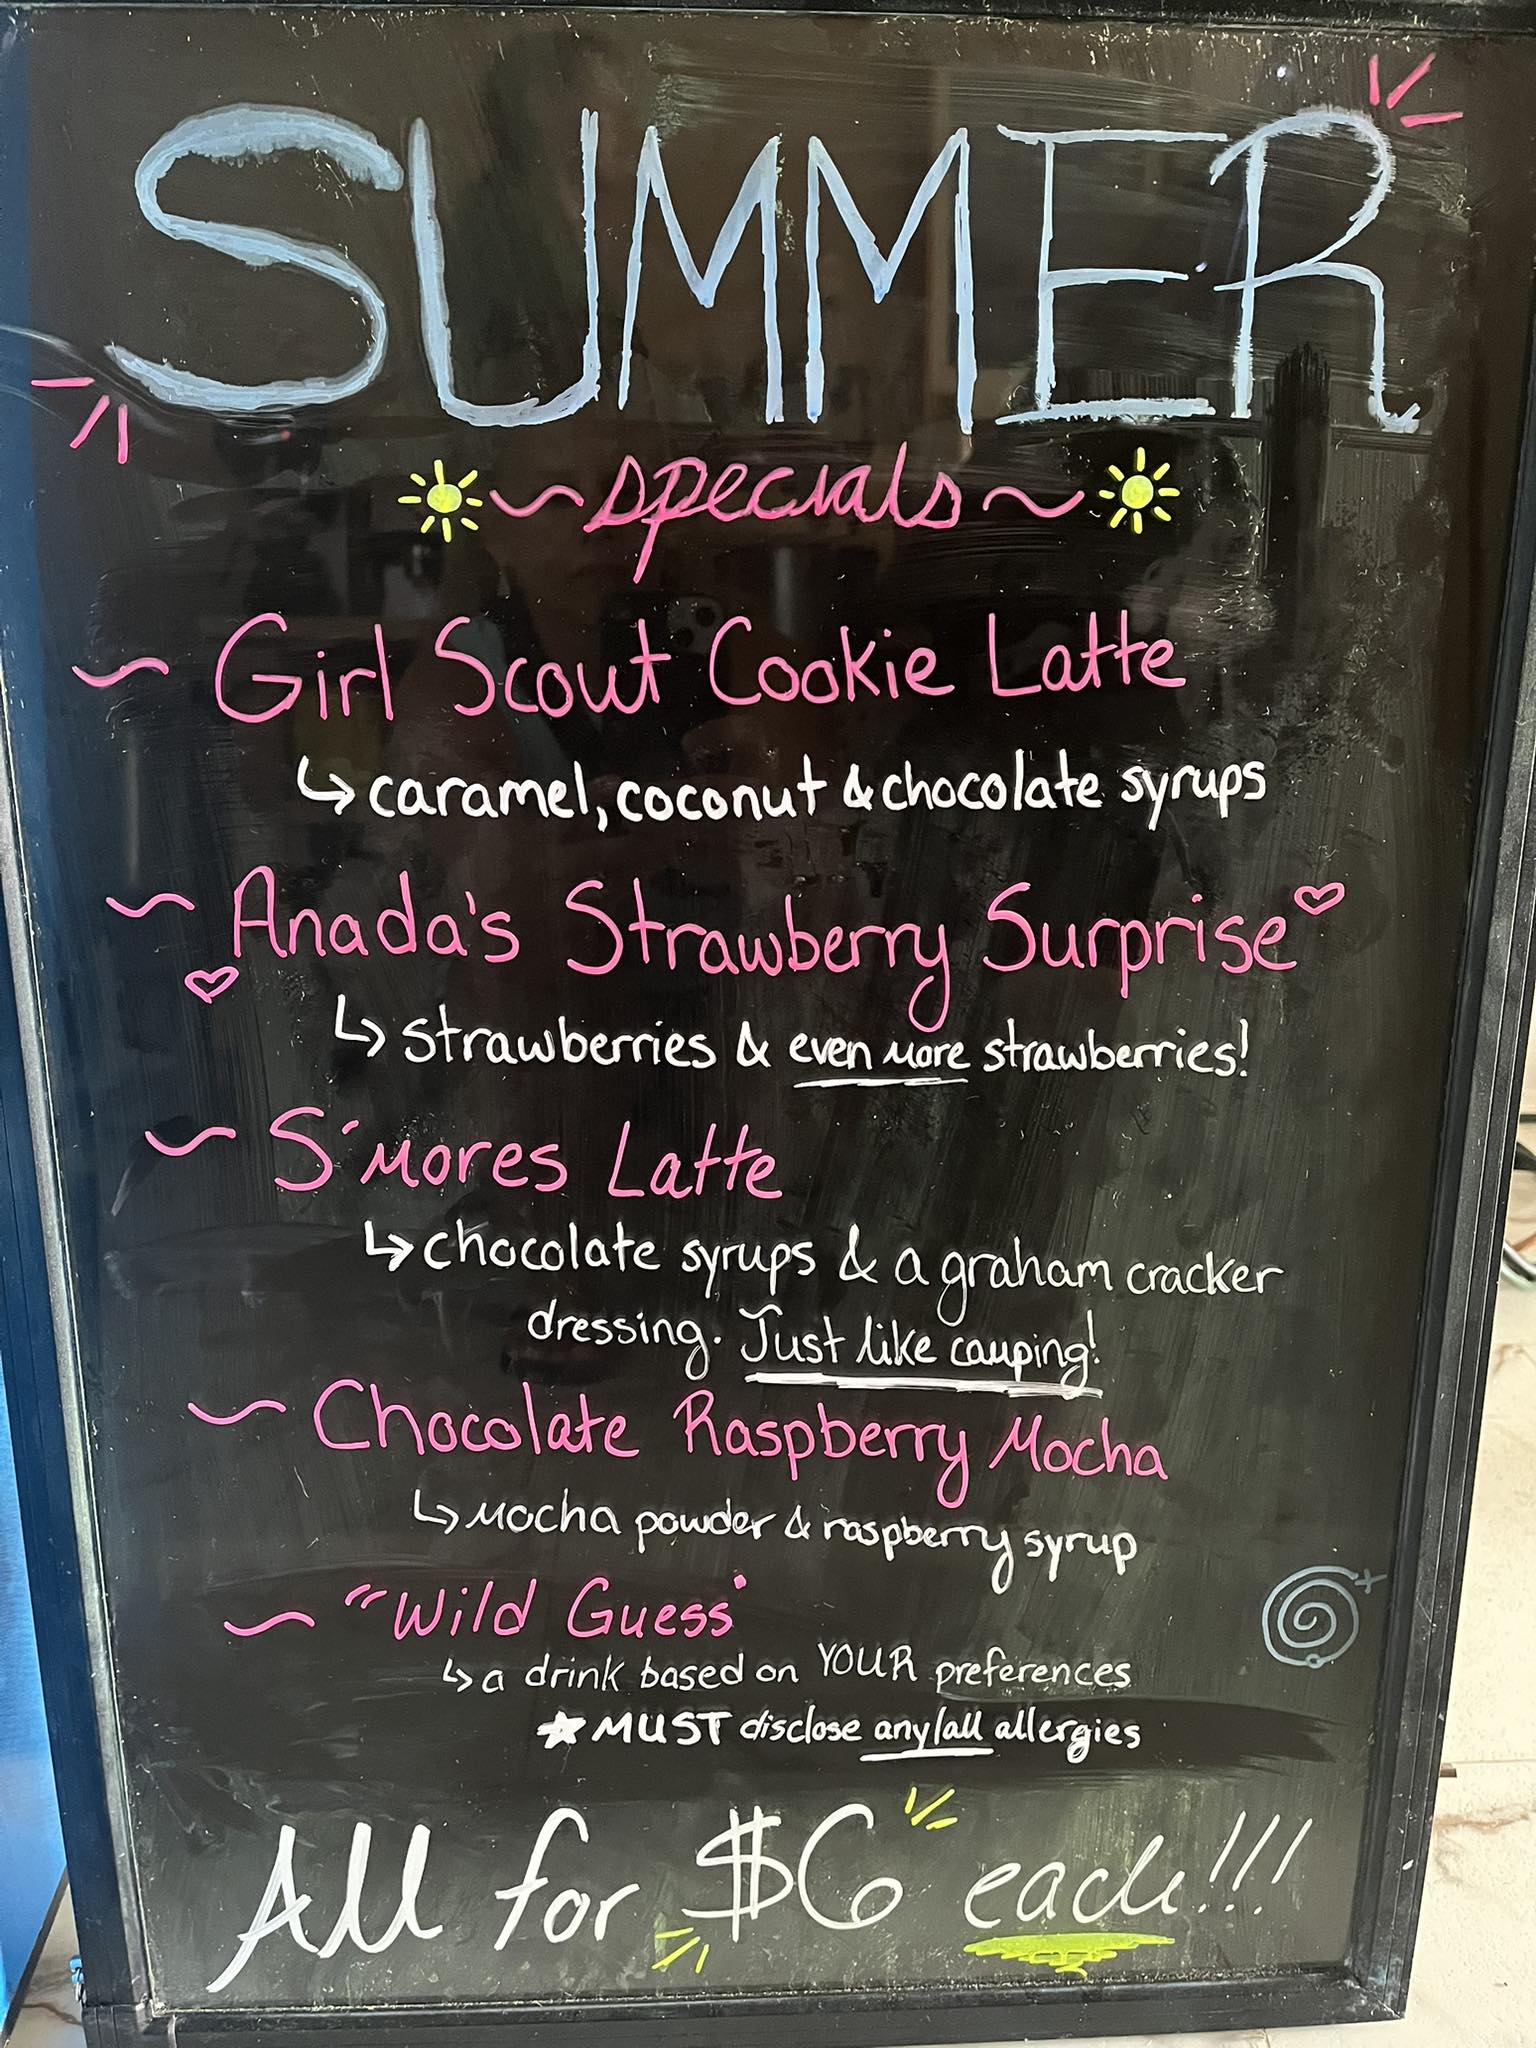 SUMMER
~specials~
~ Girl Scout Cookie Latte
↳ caramel, coconut & chocolate syrups
~ Anada's Strawberry Surprise
↳ strawberries & even more strawberries!
~ S'mores Latte
↳ chocolate syrups & a graham cracker
dressing. Just like camping!
~ Chocolate Raspberry Mocha
↳ mocha powder & raspberry syrup
~ "Wild Guess"
↳ a drink based on YOUR preferences
★ MUST disclose any/all allergies
All for $6 each!!!